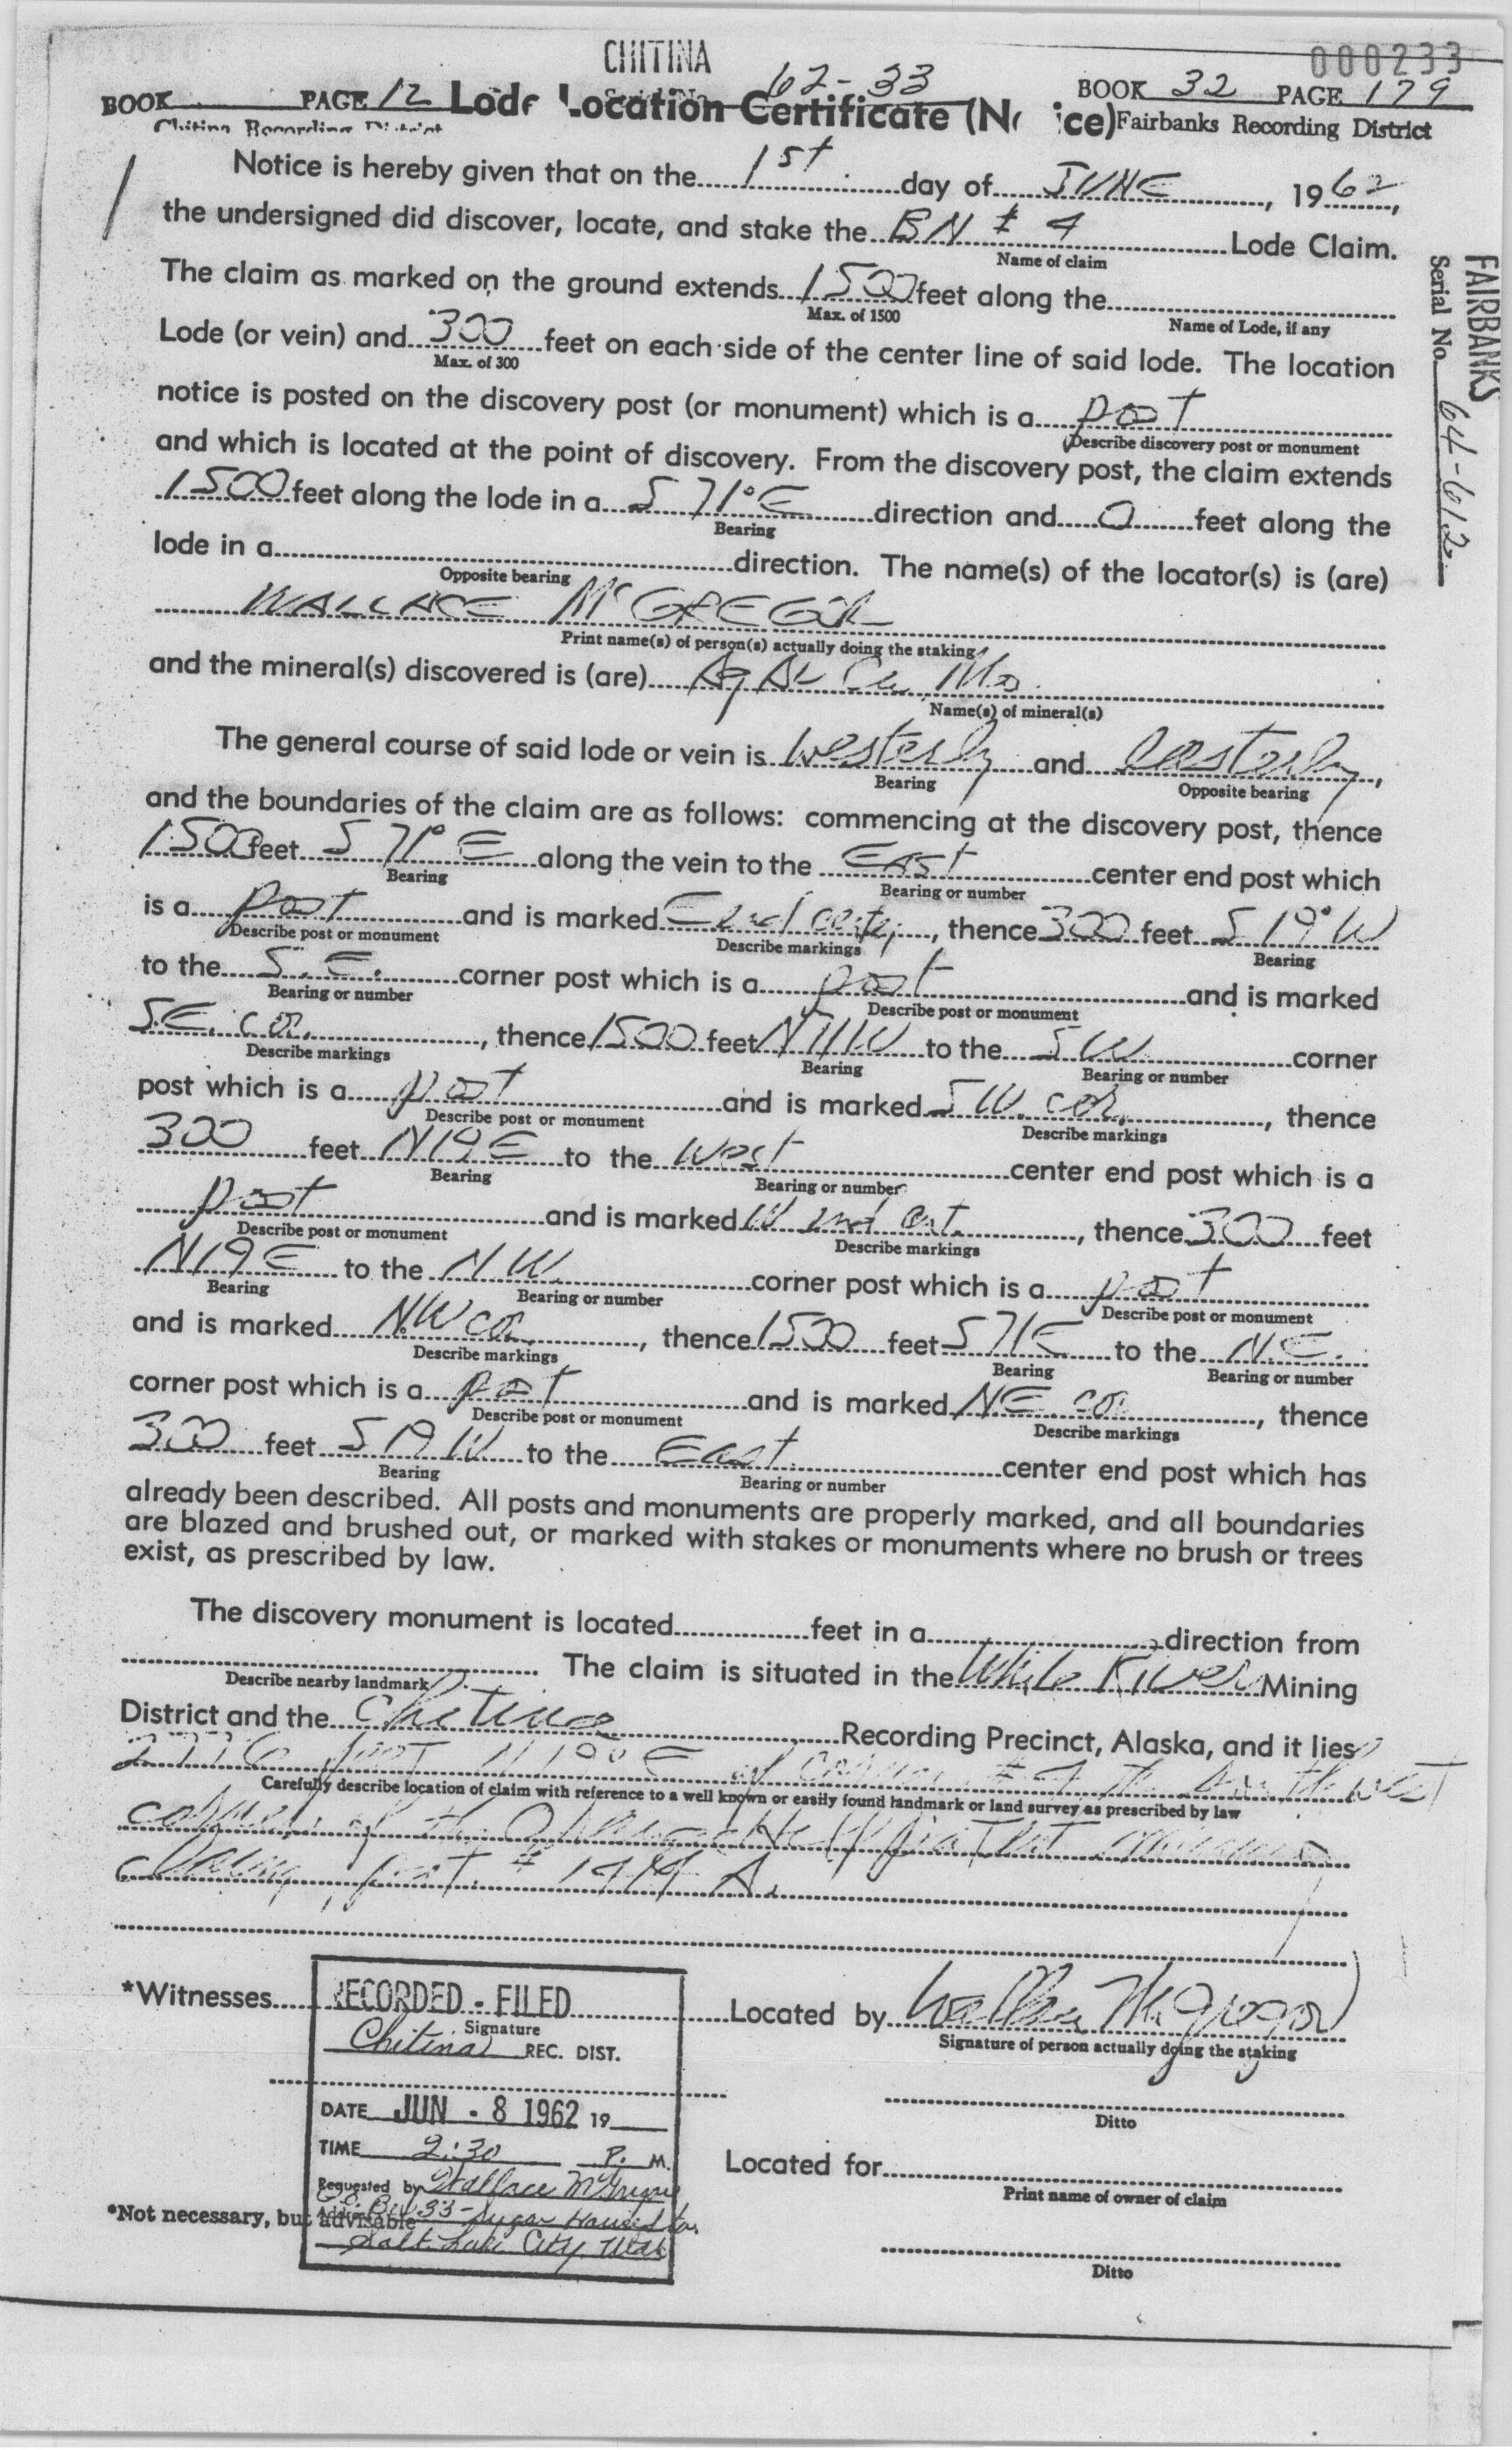 CHITINA
000233
62-33
BOOK PAGE 12 Lode Location Certificate (Notice) BOOK 32 PAGE 179
Chitina Recording District Fairbanks Recording District
Notice is hereby given that on the 1st day of JUNE, 1962,
the undersigned did discover, locate, and stake the BN # 4 Lode Claim.
Name of claim
The claim as marked on the ground extends 1500 feet along the
Max. of 1500 Name of Lode, if any
Lode (or vein) and 300 feet on each side of the center line of said lode. The location
Max. of 300
notice is posted on the discovery post (or monument) which is a post
Describe discovery post or monument
and which is located at the point of discovery. From the discovery post, the claim extends
1500 feet along the lode in a S 71° E direction and 0 feet along the
Bearing
lode in a direction. The name(s) of the locator(s) is (are)
Opposite bearing
WALLACE McGREGOR
Print name(s) of person(s) actually doing the staking
and the mineral(s) discovered is (are) Ag Au Cu Mo
Name(s) of mineral(s)
The general course of said lode or vein is Westerly and Easterly,
Bearing Opposite bearing
and the boundaries of the claim are as follows: commencing at the discovery post, thence
1500 feet S 71° E along the vein to the EAST center end post which
Bearing Bearing or number
is a post and is marked End center, thence 300 feet S 19° W
Describe post or monument Describe markings Bearing
to the S.E. corner post which is a post and is marked
Bearing or number Describe post or monument
S.E. cor., thence 1500 feet N71W to the SW corner
Describe markings Bearing Bearing or number
post which is a post and is marked SW. cor., thence
Describe post or monument Describe markings
300 feet N19E to the West center end post which is a
Bearing Bearing or number
post and is marked W end cent., thence 300 feet
Describe post or monument Describe markings
N19E to the NW corner post which is a post
Bearing Bearing or number Describe post or monument
and is marked N.W cor., thence 1500 feet S71E to the N.E.
Describe markings Bearing Bearing or number
corner post which is a post and is marked NE cor, thence
Describe post or monument Describe markings
300 feet S 19 W to the East center end post which has
Bearing Bearing or number
already been described. All posts and monuments are properly marked, and all boundaries
are blazed and brushed out, or marked with stakes or monuments where no brush or trees
exist, as prescribed by law.
The discovery monument is located feet in a direction from
The claim is situated in the White River Mining
Describe nearby landmark
District and the Chitina Recording Precinct, Alaska, and it lies
feet N 19° E of corner # 4 the Southwest
Carefully describe location of claim with reference to a well known or easily found landmark or land survey as prescribed by law
corner of the patent
claim, pat. # 1414 A.
*Witnesses Located by Wallace McGregor
Signature Signature of person actually doing the staking
RECORDED - FILED
Chitina REC. DIST.
DATE JUN - 8 1962 19
Ditto
TIME 2:30 P. M.
Located for
Requested by Wallace McGregor
Print name of owner of claim
*Not necessary, but advisable
Address Box 33 - Sugar House Sta.
Salt Lake City, Utah
Ditto
FAIRBANKS
Serial No. 64-612